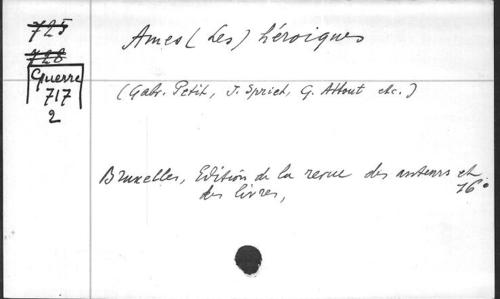 725
728
Guerre
717
2
Ames (Les) héroiques
(Gabr. Petit, J. Spriet, G. Attout etc.)
Bruxelles, Edition de la revue des auteurs et
des livres, 16°